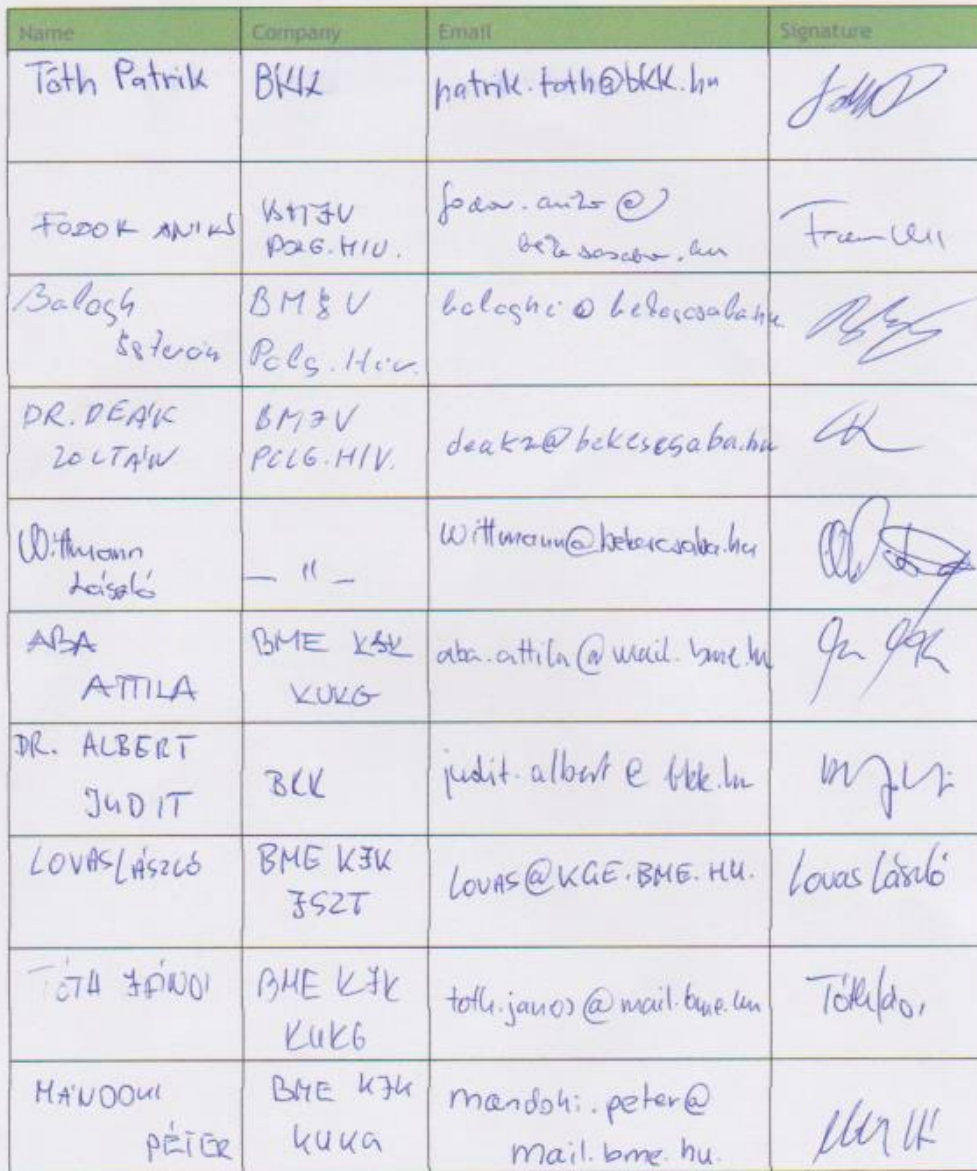 Name Company Email Signature
Tóth Patrik BKK patrik.toth@bkk.hu
FODOR ANIKÓ BMJV
POLG.HIV. fodor.aniko@
bekescsaba.hu
Balogh
István BMJV
Polg.Hiv. baloghi@bekescsaba.hu
DR. DEÁK
ZOLTÁN BMJV
POLG.HIV. deakz@bekescsaba.hu
Wittmann
László — " — wittmann@bekescsaba.hu
ABA
ATTILA BME KJK
KUKG aba.attila@mail.bme.hu
DR. ALBERT
JUDIT BKK judit.albert@bkk.hu
LOVAS LÁSZLÓ BME KJK
JSZT LOVAS@KGE.BME.HU. Lovas László
TÓTH JÁNOS BME KJK
KUKG toth.janos@mail.bme.hu
MÁNDOKI
PÉTER BME KJK
KUKG mandoki.peter@
mail.bme.hu.